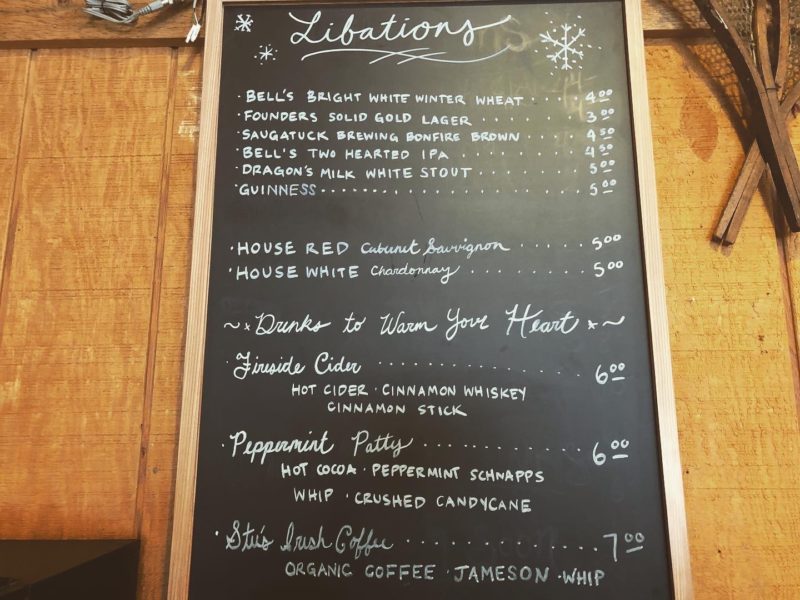 Libations
· BELL'S BRIGHT WHITE WINTER WHEAT . . . . . 4.00
· FOUNDERS SOLID GOLD LAGER . . . . . . . . 3.00
· SAUGATUCK BREWING BONFIRE BROWN . . . . . 4.50
· BELL'S TWO HEARTED IPA . . . . . . . . . . 4.50
· DRAGON'S MILK WHITE STOUT . . . . . . . . 5.00
· GUINNESS . . . . . . . . . . . . . . . . . 5.00
· HOUSE RED Cabunet Sauvignon . . . . . . 5.00
· HOUSE WHITE Chardonnay . . . . . . . . . 5.00
~ × Drinks to Warm Your Heart × ~
· Fireside Cider . . . . . . . . . . . . . . 6.00
HOT CIDER · CINNAMON WHISKEY
CINNAMON STICK
· Peppermint Patty . . . . . . . . . . . 6.00
HOT COCOA · PEPPERMINT SCHNAPPS
WHIP · CRUSHED CANDYCANE
· Stu's Irish Coffee . . . . . . . . . . . 7.00
ORGANIC COFFEE · JAMESON · WHIP